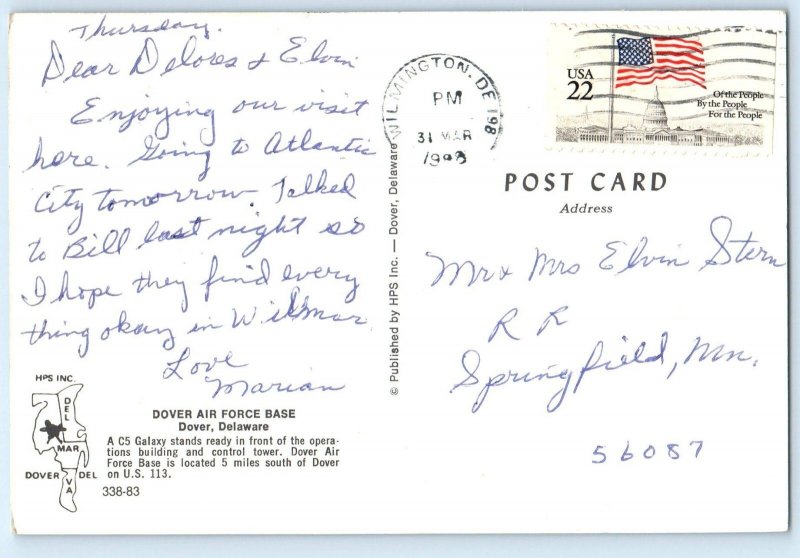 Thursday.
Dear Delores & Elvin
Enjoying our visit
here. Going to Atlantic
City tomorrow. Talked
to Bill last night so
I hope they find every
thing okay in Wilmar.
Love
Marian
HPS INC.
DEL
MAR
DOVER DEL
VA
DOVER AIR FORCE BASE
Dover, Delaware
A C5 Galaxy stands ready in front of the opera-
tions building and control tower. Dover Air
Force Base is located 5 miles south of Dover
on U.S. 113.
338-83
© Published by HPS Inc. — Dover, Delaware
WILMINGTON, DE 198
PM
31 MAR
USA
22
Of the People
By the People
For the People
POST CARD
Address
Mr & Mrs Elvin Stern
R R
Springfield, Mn.
56087